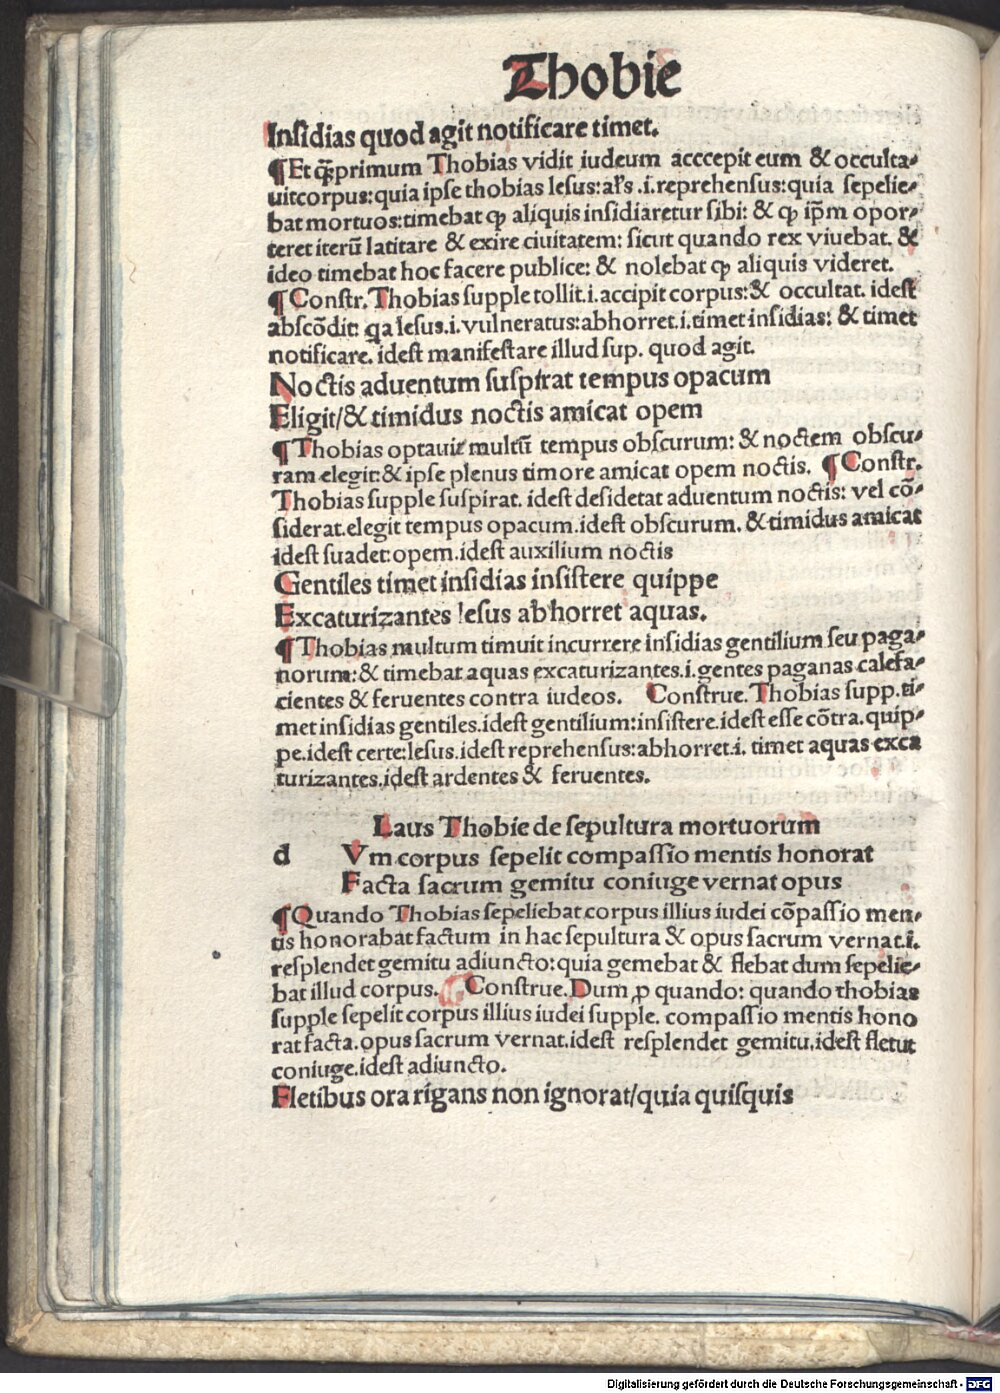 Thobie
Insidias quod agit notificare timet.
¶Et q̃primum Thobias vidit iudeum acccepit eum & occulta⸗
uitcorpus:quia ipse thobias lesus:al's .i.reprehensus:quia sepelie⸗
bat mortuos:timebat qꝫ aliquis insidiaretur sibi: & qꝫ ip̃m opor⸗
teret iterũ latitare & exire ciuitatem: sicut quando rex viuebat. &
ideo timebat hoc facere publice: & nolebat qꝫ aliquis videret.
¶Constr. Thobias supple tollit.i.accipit corpus:& occultat. idest
abscõdit: qa lesus.i.vulneratus:abhorret.i.timet insidias: & timet
notificare. idest manifestare illud sup. quod agit.
Noctis aduentum suspirat tempus opacum
Eligit/& timidus noctis amicat opem
¶Thobias optauit multũ tempus obscurum: & noctem obscu⸗
ram elegit:& ipse plenus timore amicat opem noctis. ¶Constr.
Thobias supple suspirat. idest desidetat aduentum noctis: vel cõ⸗
siderat.elegit tempus opacum.idest obscurum. &timidus amicat
idest suadet:opem.idest auxilium noctis
Gentiles timet insidias insistere quippe
Excaturizantes lesus abhorret aquas.
¶Thobias multum timuit incurrere insidias gentilium seu paga⸗
norum:& timebat aquas excaturizantes.i.gentes paganas calefa⸗
cientes & feruentes contra iudeos. Construe. Thobias supp.ti⸗
met insidias gentiles.idest gentilium:insistere.idest esse cõtra.quip⸗
pe.idest certe:lesus.idest reprehensus:abhorret.i. timet aquas exca
turizantes.idest ardentes & feruentes.
Laus Thobie de sepultura mortuorum
d Vm corpus sepelit compassio mentis honorat
Facta sacrum gemitu coniuge vernat opus
¶Quando Thobias sepeliebat corpus illius iudei cõpassio men⸗
tis honorabat factum in hac sepultura & opus sacrum vernat.i.
resplendet gemitu adiuncto:quia gemebat & flebat dum sepelie⸗
bat illud corpus. Construe.Dum ꝓ quando: quando thobias
supple sepelit corpus illius iudei supple. compassio mentis hono
rat facta.opus sacrum vernat.idest resplendet gemitu.idest fletut
coniuge.idest adiuncto.
Fletibus ora rigans non ignorat/quia quisquis
Digitalisierung gefördert durch die Deutsche Forschungsgemeinschaft - DFG